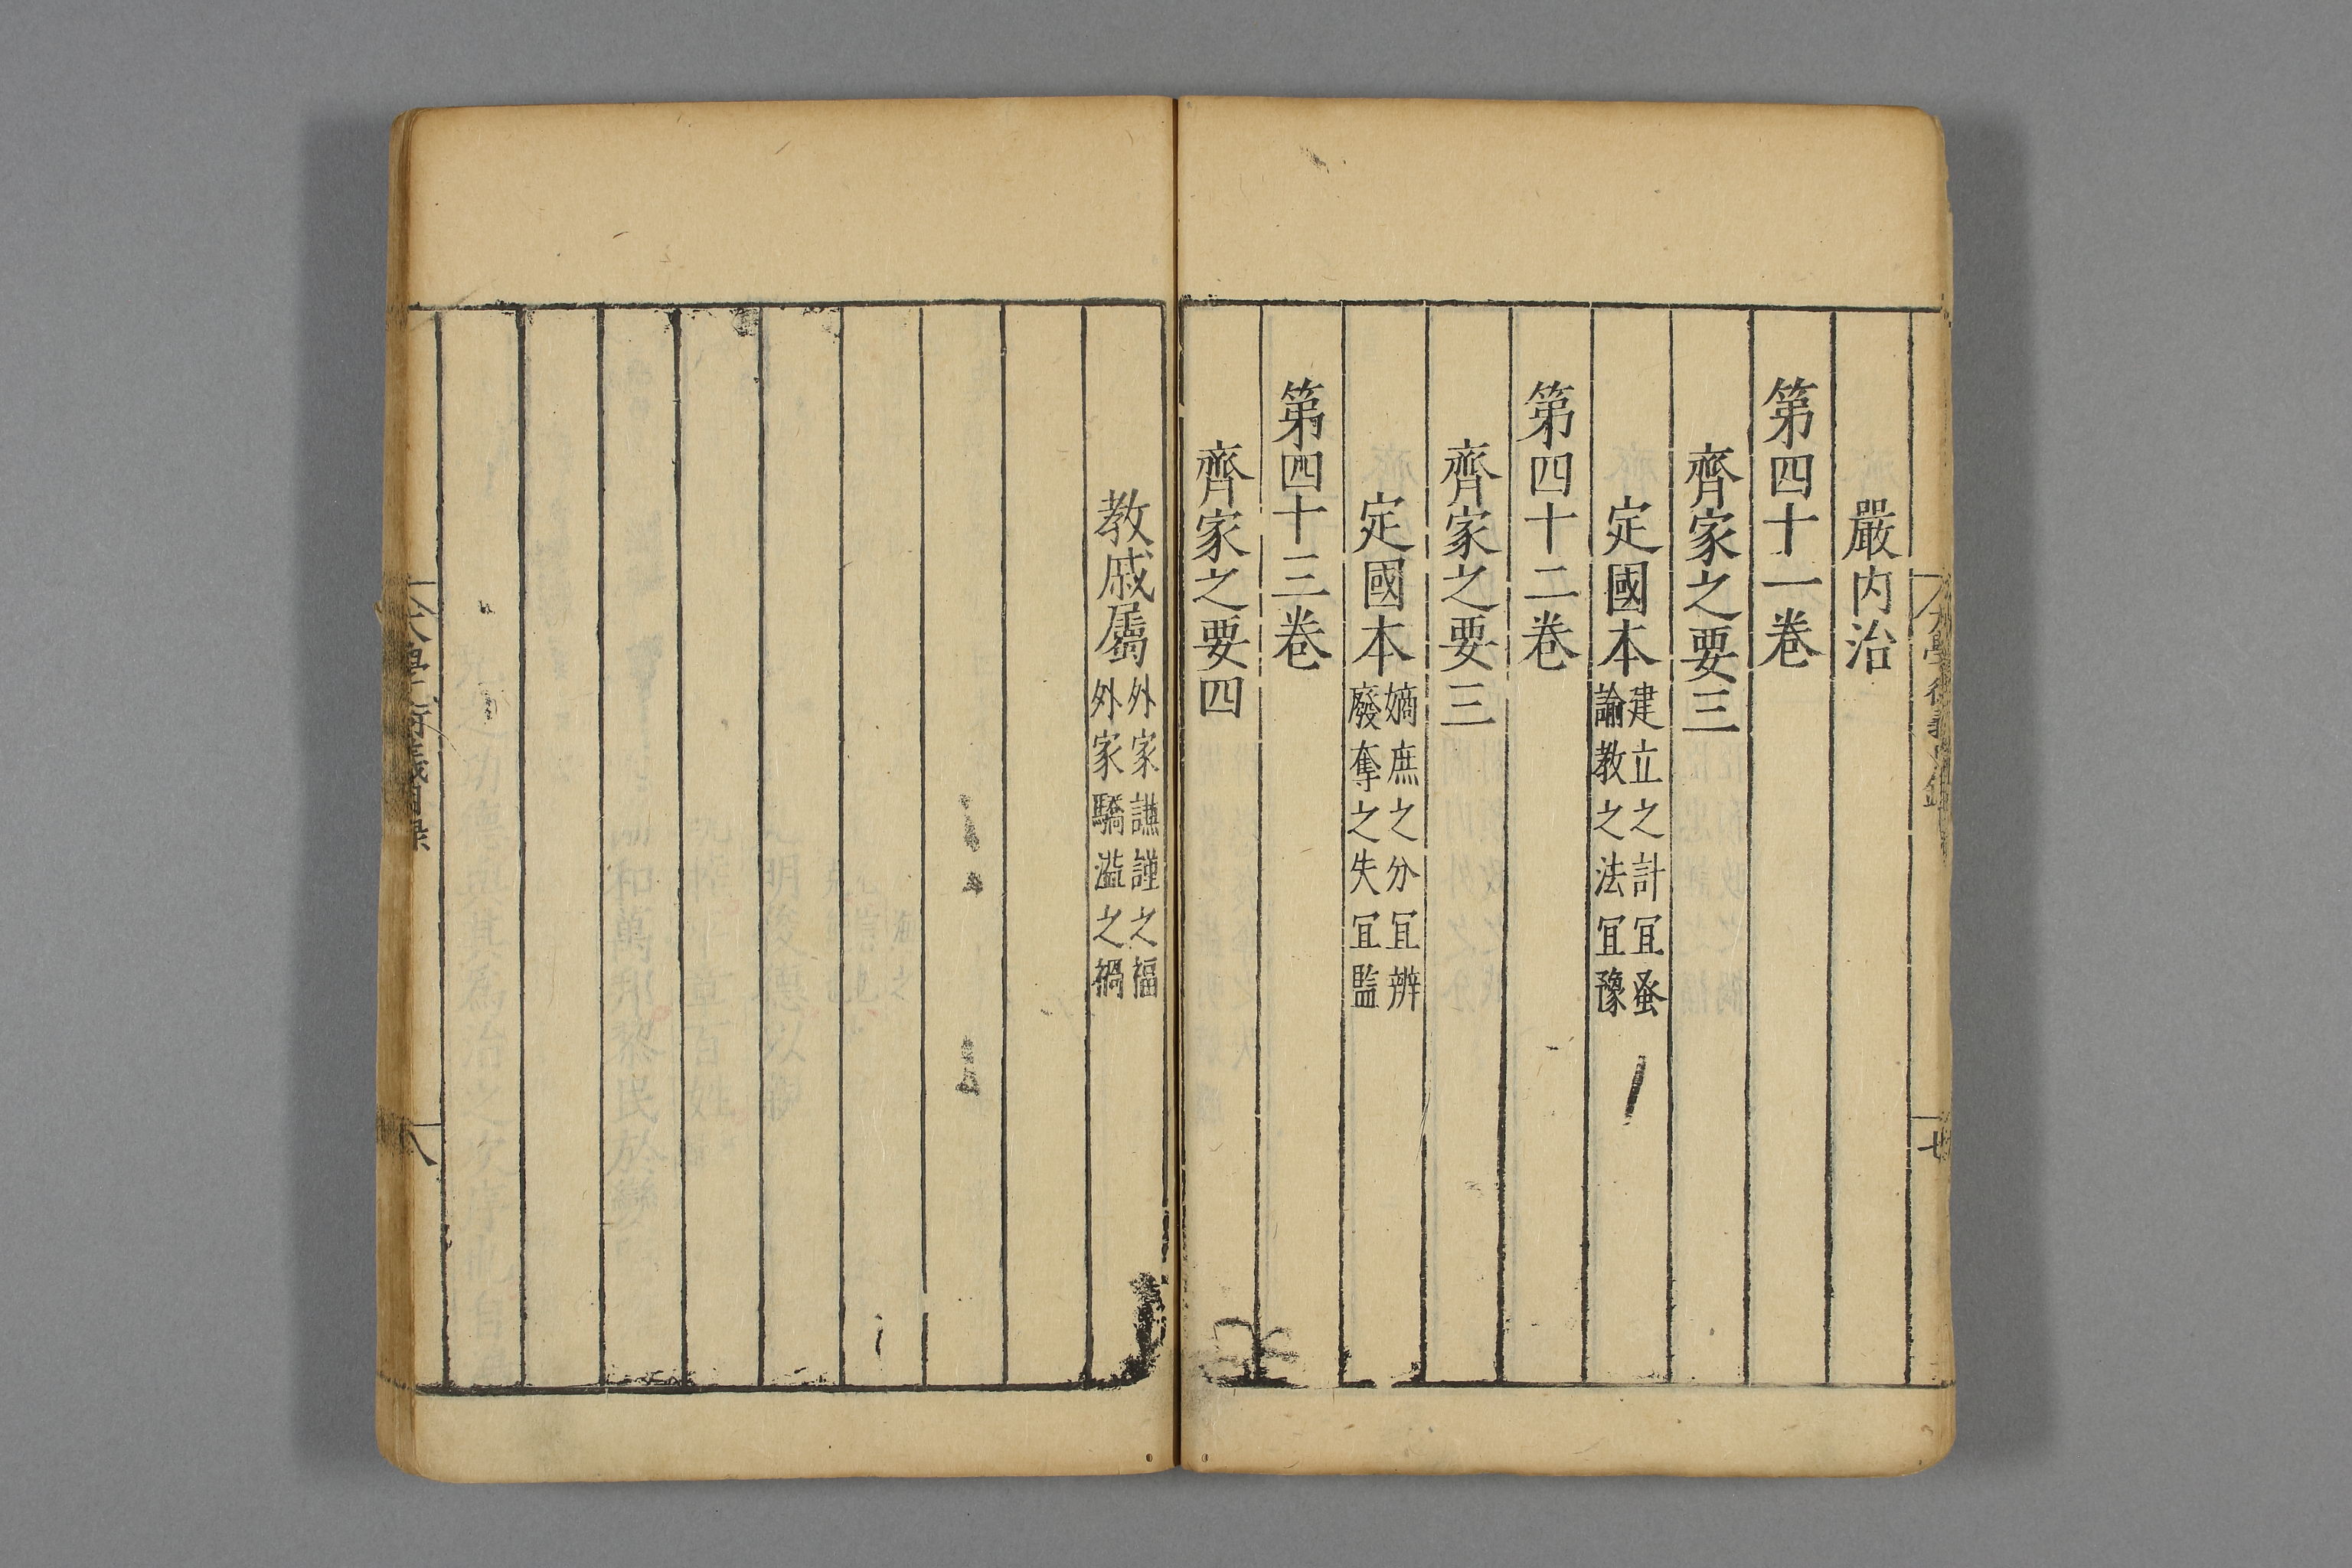 嚴内治
第四十一卷
齊家之要三
定國本 建立之計宜蚤
諭教之法宜豫
第四十二卷
齊家之要三
定國本 嫡庶之分宜辨
廢奪之失宜監
第四十三卷
齊家之要四
教戚屬 外家謙謹之福
外家驕溢之禍